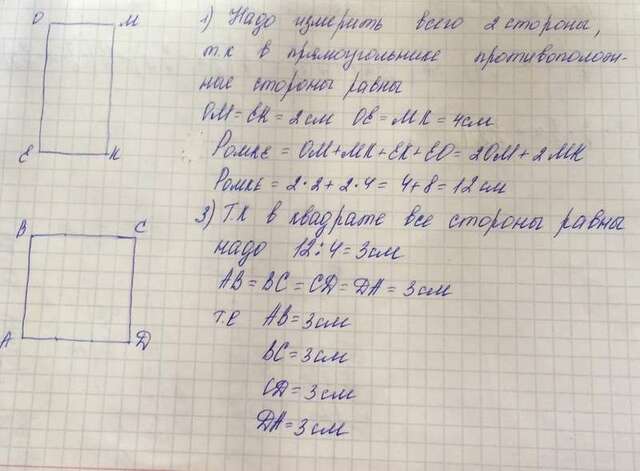 O M
E K
1) Надо измерить всего 2 стороны,
т.к в прямоугольнике противополож-
ные стороны равны
OM = EK = 2 см OE = MK = 4 см
Pомке = OM + MK + EK + EO = 2OM + 2MK
Pомке = 2·2 + 2·4 = 4 + 8 = 12 см
3) Т.К в квадрате все стороны равны
надо 12:4 = 3 см
AB = BC = CD = DA = 3 см
т.е AB = 3 см
BC = 3 см
CD = 3 см
DA = 3 см
B C
A D